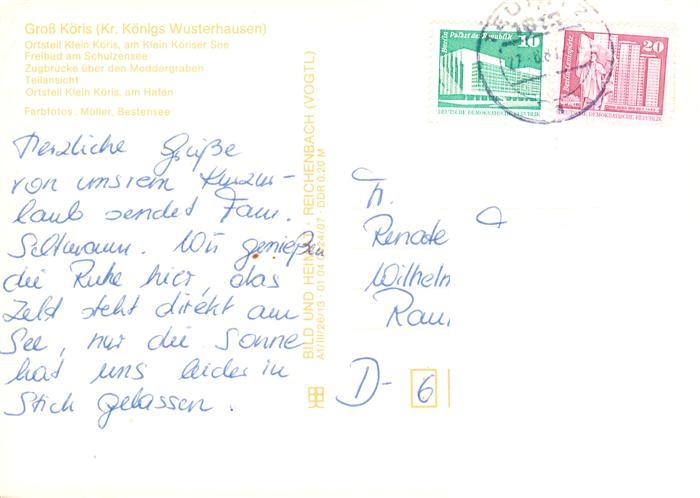 Groß Köris (Kr. Königs Wusterhausen)
Ortsteil Klein Köris, am Klein Köriser See
Freibad am Schulzensee
Zugbrücke über den Moddergraben
Teilansicht
Ortsteil Klein Köris, am Hafen
Farbfotos: Müller, Bestensee
Herzliche Grüße
von unsrem Kurzur-
laub sendet Fam.
Wir genießen
die Ruhe hier, das
Zelt steht direkt am
See, nur die Sonne
hat uns leider in
Stich gelassen.
BILD UND HEIM REICHENBACH (VOGTL)
A1/III/26/13 01 04 24/07 DDR 0,20 M
Berlin Palast der Republik
10
DEUTSCHE DEMOKRATISCHE REPUBLIK
20
Berlin, Leninplatz
DEUTSCHE DEMOKRATISCHE REPUBLIK
Fr.
Renate
Wilhelm
D- 6